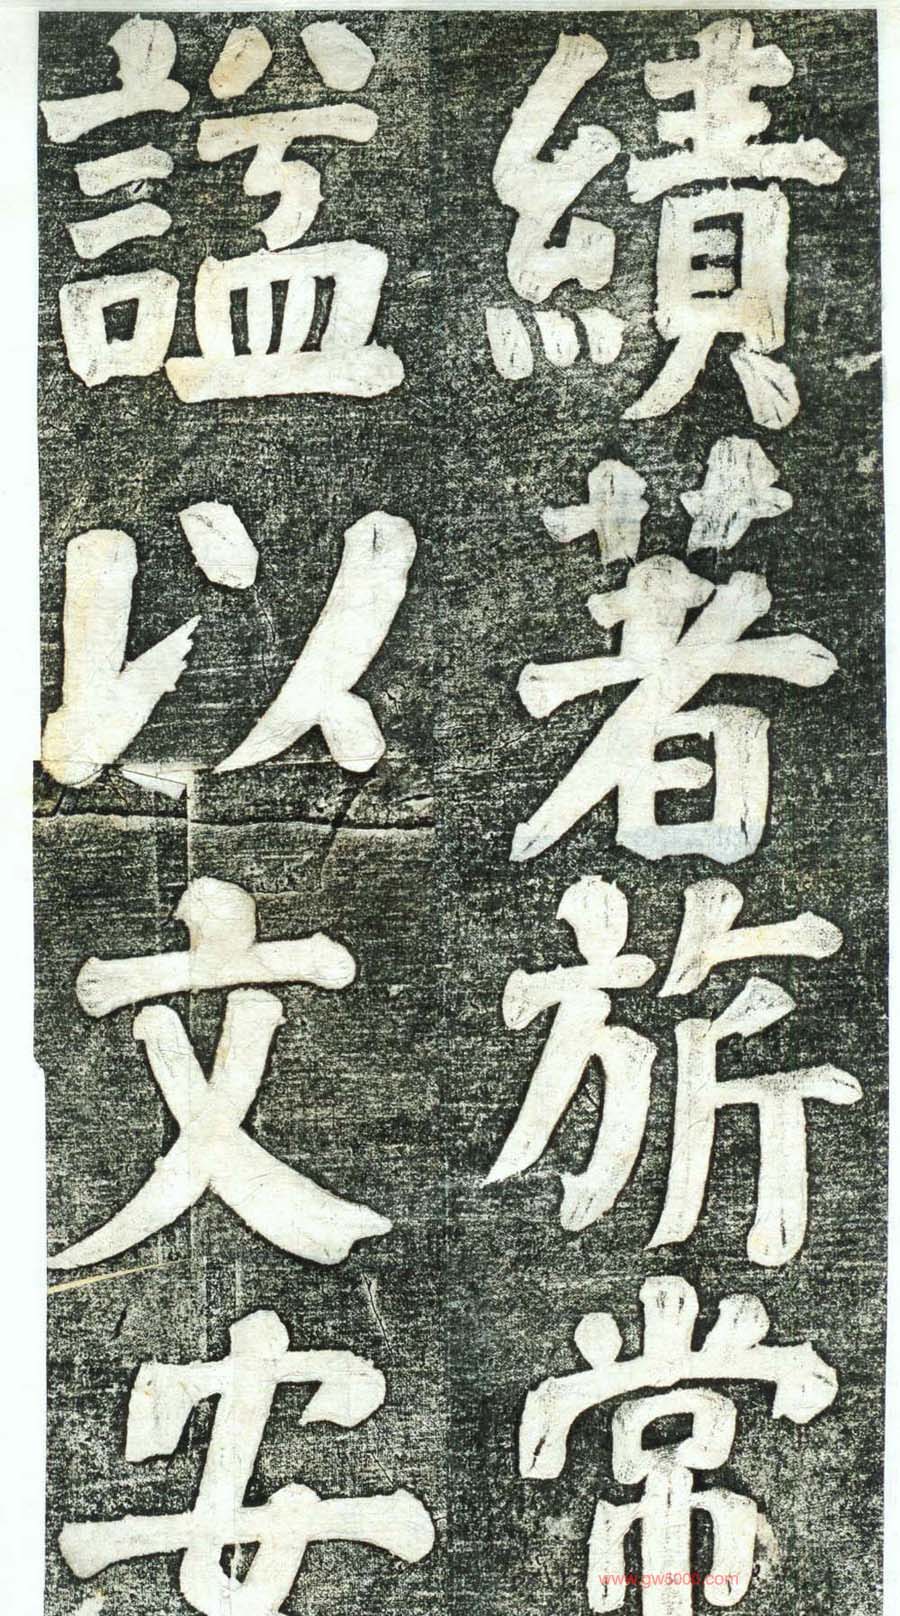 績著旂常
謚以文安
www.gw8000.com